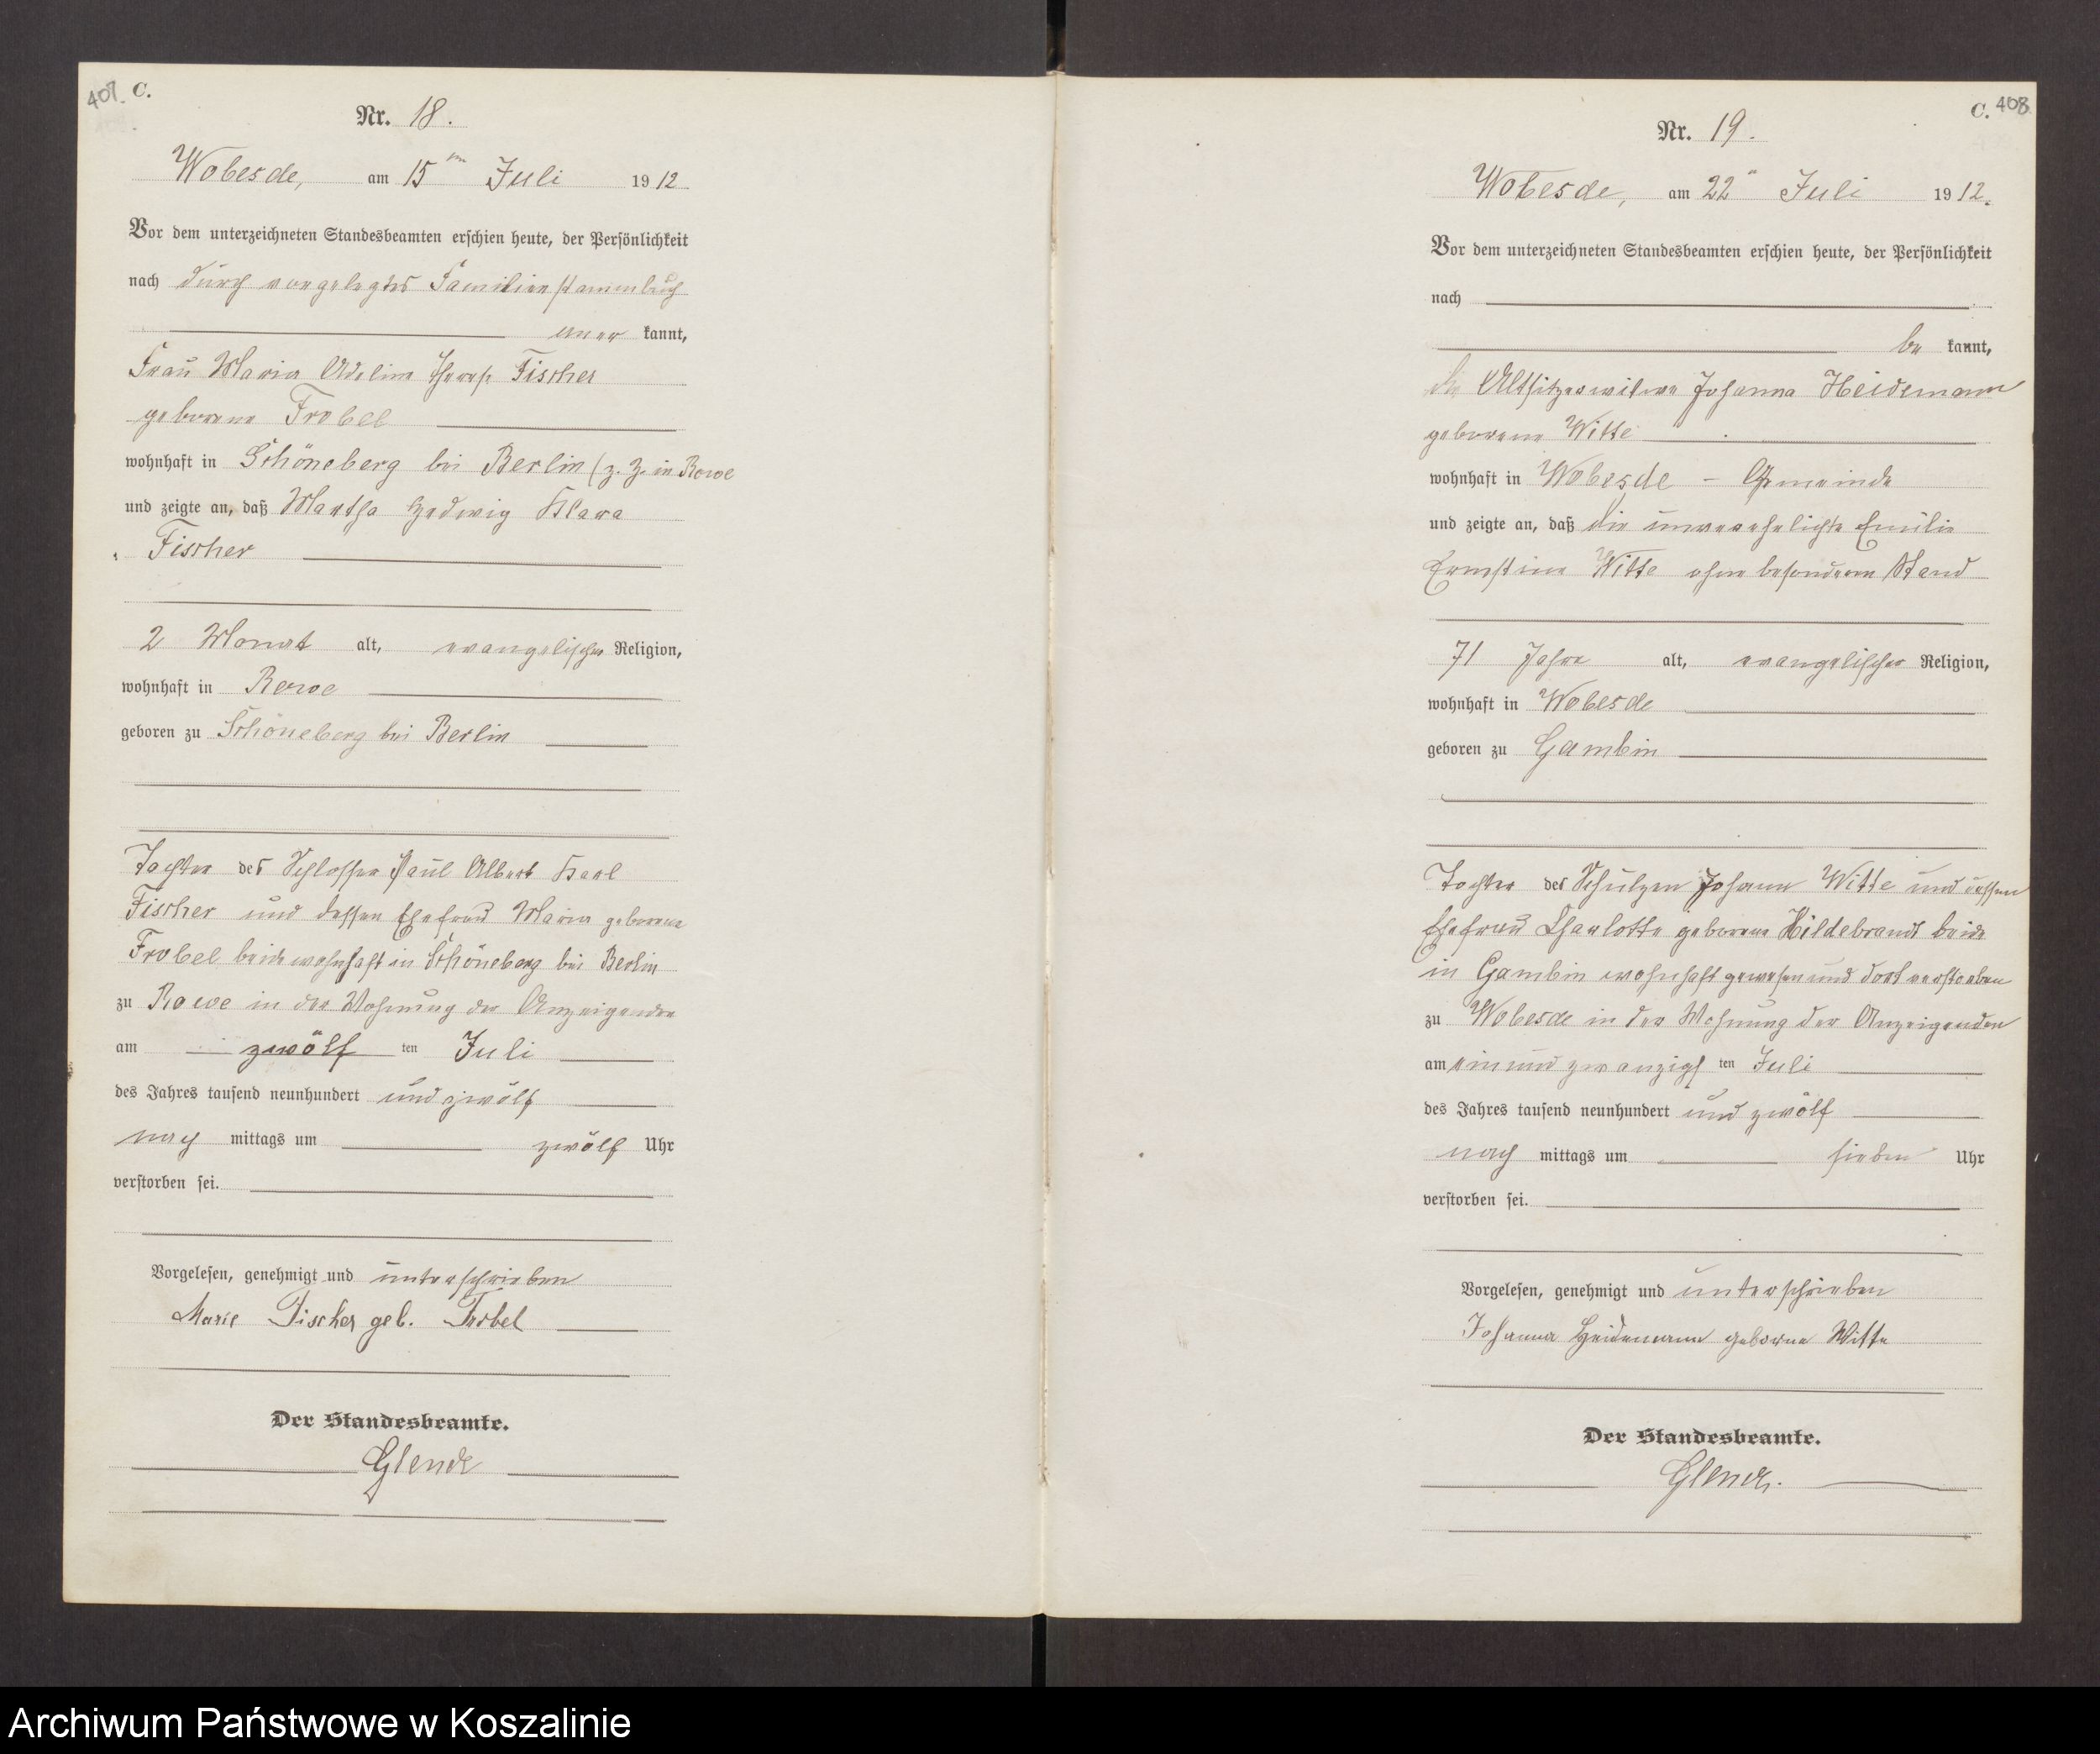 407. C.
Nr. 18.
Wobesde, am 15ten Juli 1912
Vor dem unterzeichneten Standesbeamten erschien heute, der Persönlichkeit
nach durch vorgelegtes Familienstammbuch
aner kannt,
Frau Marie Adeline Therese Fischer
geborene Frobel
wohnhaft in Schöneberg bei Berlin (z. Z. in Rowe
und zeigte an, daß Martha Hedwig Klara
Fischer
2 Monat alt, evangelischer Religion,
wohnhaft in Rowe
geboren zu Schöneberg bei Berlin
Tochter des Schlosser Paul Albert Karl
Fischer und dessen Ehefrau Marie geborene
Frobel beide wohnhaft in Schöneberg bei Berlin
zu Rowe in der Wohnung der Anzeigenden
am zwölf ten Juli
des Jahres tausend neunhundert und zwölf
nach mittags um zwölf Uhr
verstorben sei.
Vorgelesen, genehmigt und unterschrieben
Marie Fischer geb. Frobel
Der Standesbeamte.
Glende
C. 408
Nr. 19.
Wobesde, am 22n Juli 1912.
Vor dem unterzeichneten Standesbeamten erschien heute, der Persönlichkeit
nach
be kannt,
die Altsitzerwitwe Johanna Heidemann
geborene Witte
wohnhaft in Wobesde - Gemeinde
und zeigte an, daß die unverehelichte Emilie
Ernstine Witte ohne besonderen Stand
71 Jahre alt, evangelischer Religion,
wohnhaft in Wobesde
geboren zu Gambin
Tochter des Schulzen Johann Witte und dessen
Ehefrau Charlotte geborene Hildebrandt beide
in Gambin wohnhaft gewesen und dort verstorben
zu Wobesde in der Wohnung der Anzeigenden
am einundzwanzigs ten Juli
des Jahres tausend neunhundert und zwölf
nach mittags um sieben Uhr
verstorben sei.
Vorgelesen, genehmigt und unterschrieben
Johanna Heidemann geborne Witte
Der Standesbeamte.
Glende.
Archiwum Państwowe w Koszalinie